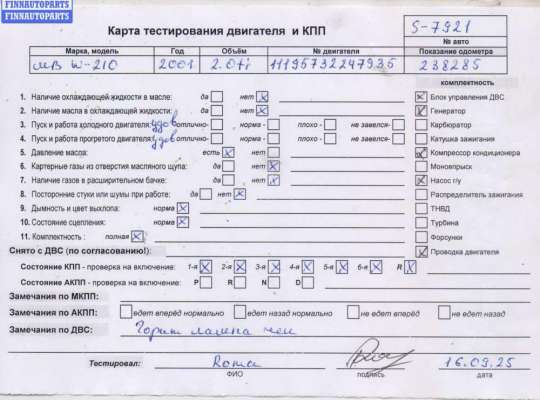 FINNAUTOPARTS
FINNAUTOPARTS
Карта тестирования двигателя и КПП
S-7921
№ авто
Марка, модель Год Объём № двигателя Показание одометра
МВ W-210 2001 2.0ti 11195732247935 238285
комплектность
1. Наличие охлаждающей жидкости в масле: да нет Блок управления ДВС
2. Наличие масла в охлаждающей жидкости: да нет Генератор
3. Пуск и работа холодного двигателя: удов отлично- норма - плохо - не завелся- Карбюратор
4. Пуск и работа прогретого двигателя: удов отлично- норма - плохо - не завелся- Катушка зажигания
5. Давление масла: есть нет Компрессор кондиционера
6. Картерные газы из отверстия масляного щупа: да нет Моновпрыск
7. Наличие газов в расширительном бачке: да нет Насос г/у
8. Посторонние стуки или шумы при работе: да нет Распределитель зажигания
9. Дымность и цвет выхлопа: норма ТНВД
10. Состояние сцепления: норма Турбина
11. Комплектность : полная Форсунки
Снято с ДВС (по согласованию!): Проводка двигателя
Состояние КПП - проверка на включение: 1-я 2-я 3-я 4-я 5-я 6-я R
Состояние АКПП - проверка на включение: P R N D
Замечания по МКПП:
Замечания по АКПП: едет вперёд нормально едет назад нормально не едет вперёд не едет назад
Замечания по ДВС: Горит лампа чек
Тестировал: Рома 16.09.25
ФИО подпись дата